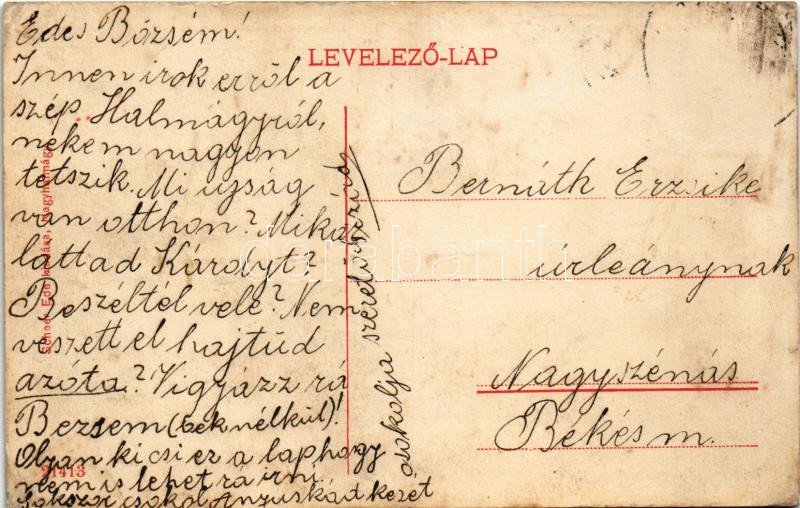 Edes Bözsém!
Innen irok erről a
szép Halmágyról,
nekem nagyon
tetszik. Mi ujság
van otthon? Mikor
láttad Károlyt?
Beszéltél vele? Nem
veszett el hajtüd
azóta? Vigyázz rá
Bezsem (bek nélkül)!
Olyan kicsi ez a lap hogy
nem is lehet rá irni.
Sokszor csokol Anzuskád kezét
csokolja szerelő
LEVELEZŐ-LAP
Bernáth Erzsike
úrleánynak
Nagyszénás
Békés m.
kiadása, Nagyhalmágy
21413
darabanth